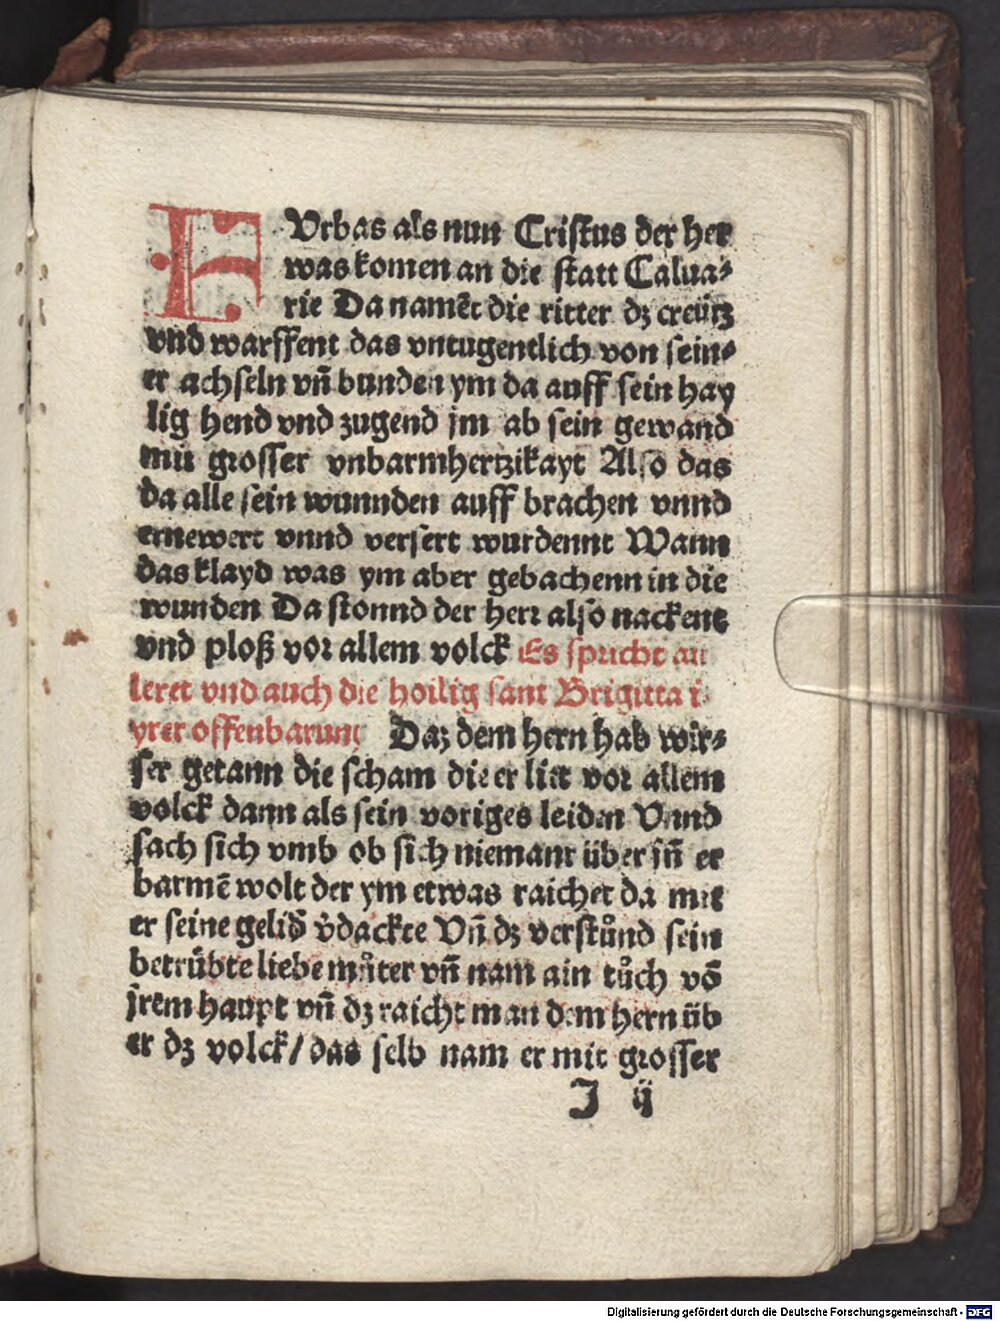 FUrbas als nun Cristus der her
was komen an die statt Calua⸗
rie Da namẽt die ritter dꝫ creütz
vnd warffent das vntugentlich von sein⸗
er achseln vñ bunden ym da auff sein hay
lig hend vnd zugend jm ab sein gewand
mit grosser vnbarmhertzikayt Also das
da alle sein wunnden auff brachen vnnd
ernewert vnnd versert wurdennt Wann
das klayd was ym aber gebachenn in die
wunden Da stonnd der herr also nackent
vnd ploß vor allem volck Es spricht an
leret vnd auch die hoilig sant Brigitta i
yrer offenbarung Daz dem hern hab wir⸗
ser getann die scham die er litt vor allem
volck dann als sein voriges leiden Vnnd
sach sich vmb ob sich niemant über jñ er
barmẽ wolt der ym etwas raichet da mit
er seine gelid v̉dackte Vñ dꝫ verstůnd sein
betrübte liebe můter vñ nam ain tůch võ
jrem haupt vñ dꝫ raicht man dem hern üb
er dꝫ volck/ das selb nam er mit grosser
I ij
Digitalisierung gefördert durch die Deutsche Forschungsgemeinschaft - DFG